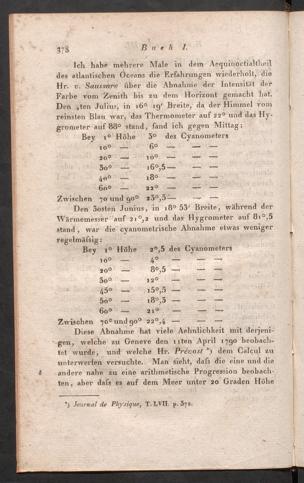 378 Buch I.
Ich habe mehrere Male in dem Aequinoctialtheil
des atlantischen Oceans die Erfahrungen wiederholt, die
Hr. v. Saussure über die Abnahme der Intensität der
Farbe vom Zenith bis zu dem Horizont gemacht hat.
Den ten Julius, in 16° 19′ Breite, da der Himmel vom
reinsten Blau war, das Thermometer auf 22° und das Hy-
grometer auf 88° stand, fand ich gegen Mittag:
Bey 1° Höhe 3° des Cyanometers
10° — 6° — — —
20° — 10° — — —
30° — 16°,5 — — —
40° — 18° — — —
60° — 22° — — —
Zwischen 70 und 90° 23°,5 — — —
Den 30sten Junius, in 18° 53′ Breite, während der
Wärmemesser auf 21°,2 und das Hygrometer auf 81°,5
stand, war die cyanometrische Abnahme etwas weniger
regelmäßig:
Bey 1° Höhe 2°,5 des Cyanometers
10° — 4° — — —
20° — 8°,5 — — —
30° — 12° — — —
45° — 15°,5 — — —
50° — 18°,3 — — —
60° — 21° — — —
Zwischen 70° und 90° 22°,4 — — —
Diese Abnahme hat viele Aehnlichkeit mit derjeni-
gen, welche zu Geneve den 11ten April 1790 beobach-
tet wurde, und welche Hr. Prévost *) dem Calcul zu
unterwerfen versuchte. Man sieht, daß die eine und die
andere nahe zu eine arithmetische Progression beobach-
ten, aber daß es auf dem Meer unter 20 Graden Höhe
*) Journal de Physique, T. LVII. p. 372.